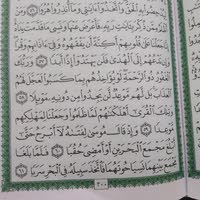 لِيُدْحِضُوا۟ بِهِ ٱلْحَقَّ وَٱتَّخَذُوٓا۟ ءَايَٰتِى وَمَآ أُنذِرُوا۟ هُزُوًا ٥٦
وَمَنْ أَظْلَمُ مِمَّن ذُكِّرَ بِـَٔايَٰتِ رَبِّهِۦ فَأَعْرَضَ عَنْهَا وَنَسِىَ مَا قَدَّمَتْ يَدَاهُ
إِنَّا جَعَلْنَا عَلَىٰ قُلُوبِهِمْ أَكِنَّةً أَن يَفْقَهُوهُ وَفِىٓ ءَاذَانِهِمْ وَقْرًا
وَإِن تَدْعُهُمْ إِلَى ٱلْهُدَىٰ فَلَن يَهْتَدُوٓا۟ إِذًا أَبَدًا ٥٧ وَرَبُّكَ
ٱلْغَفُورُ ذُو ٱلرَّحْمَةِ لَوْ يُؤَاخِذُهُم بِمَا كَسَبُوا۟ لَعَجَّلَ لَهُمُ
ٱلْعَذَابَ بَل لَّهُم مَّوْعِدٌ لَّن يَجِدُوا۟ مِن دُونِهِۦ مَوْئِلًا ٥٨
وَتِلْكَ ٱلْقُرَىٰٓ أَهْلَكْنَٰهُمْ لَمَّا ظَلَمُوا۟ وَجَعَلْنَا لِمَهْلِكِهِم
مَّوْعِدًا ٥٩ وَإِذْ قَالَ مُوسَىٰ لِفَتَىٰهُ لَآ أَبْرَحُ حَتَّىٰٓ
أَبْلُغَ مَجْمَعَ ٱلْبَحْرَيْنِ أَوْ أَمْضِىَ حُقُبًا ٦٠ فَلَمَّا بَلَغَا
مَجْمَعَ بَيْنِهِمَا نَسِيَا حُوتَهُمَا فَٱتَّخَذَ سَبِيلَهُۥ فِى ٱلْبَحْرِ سَرَبًا ٦١
٣٠٠